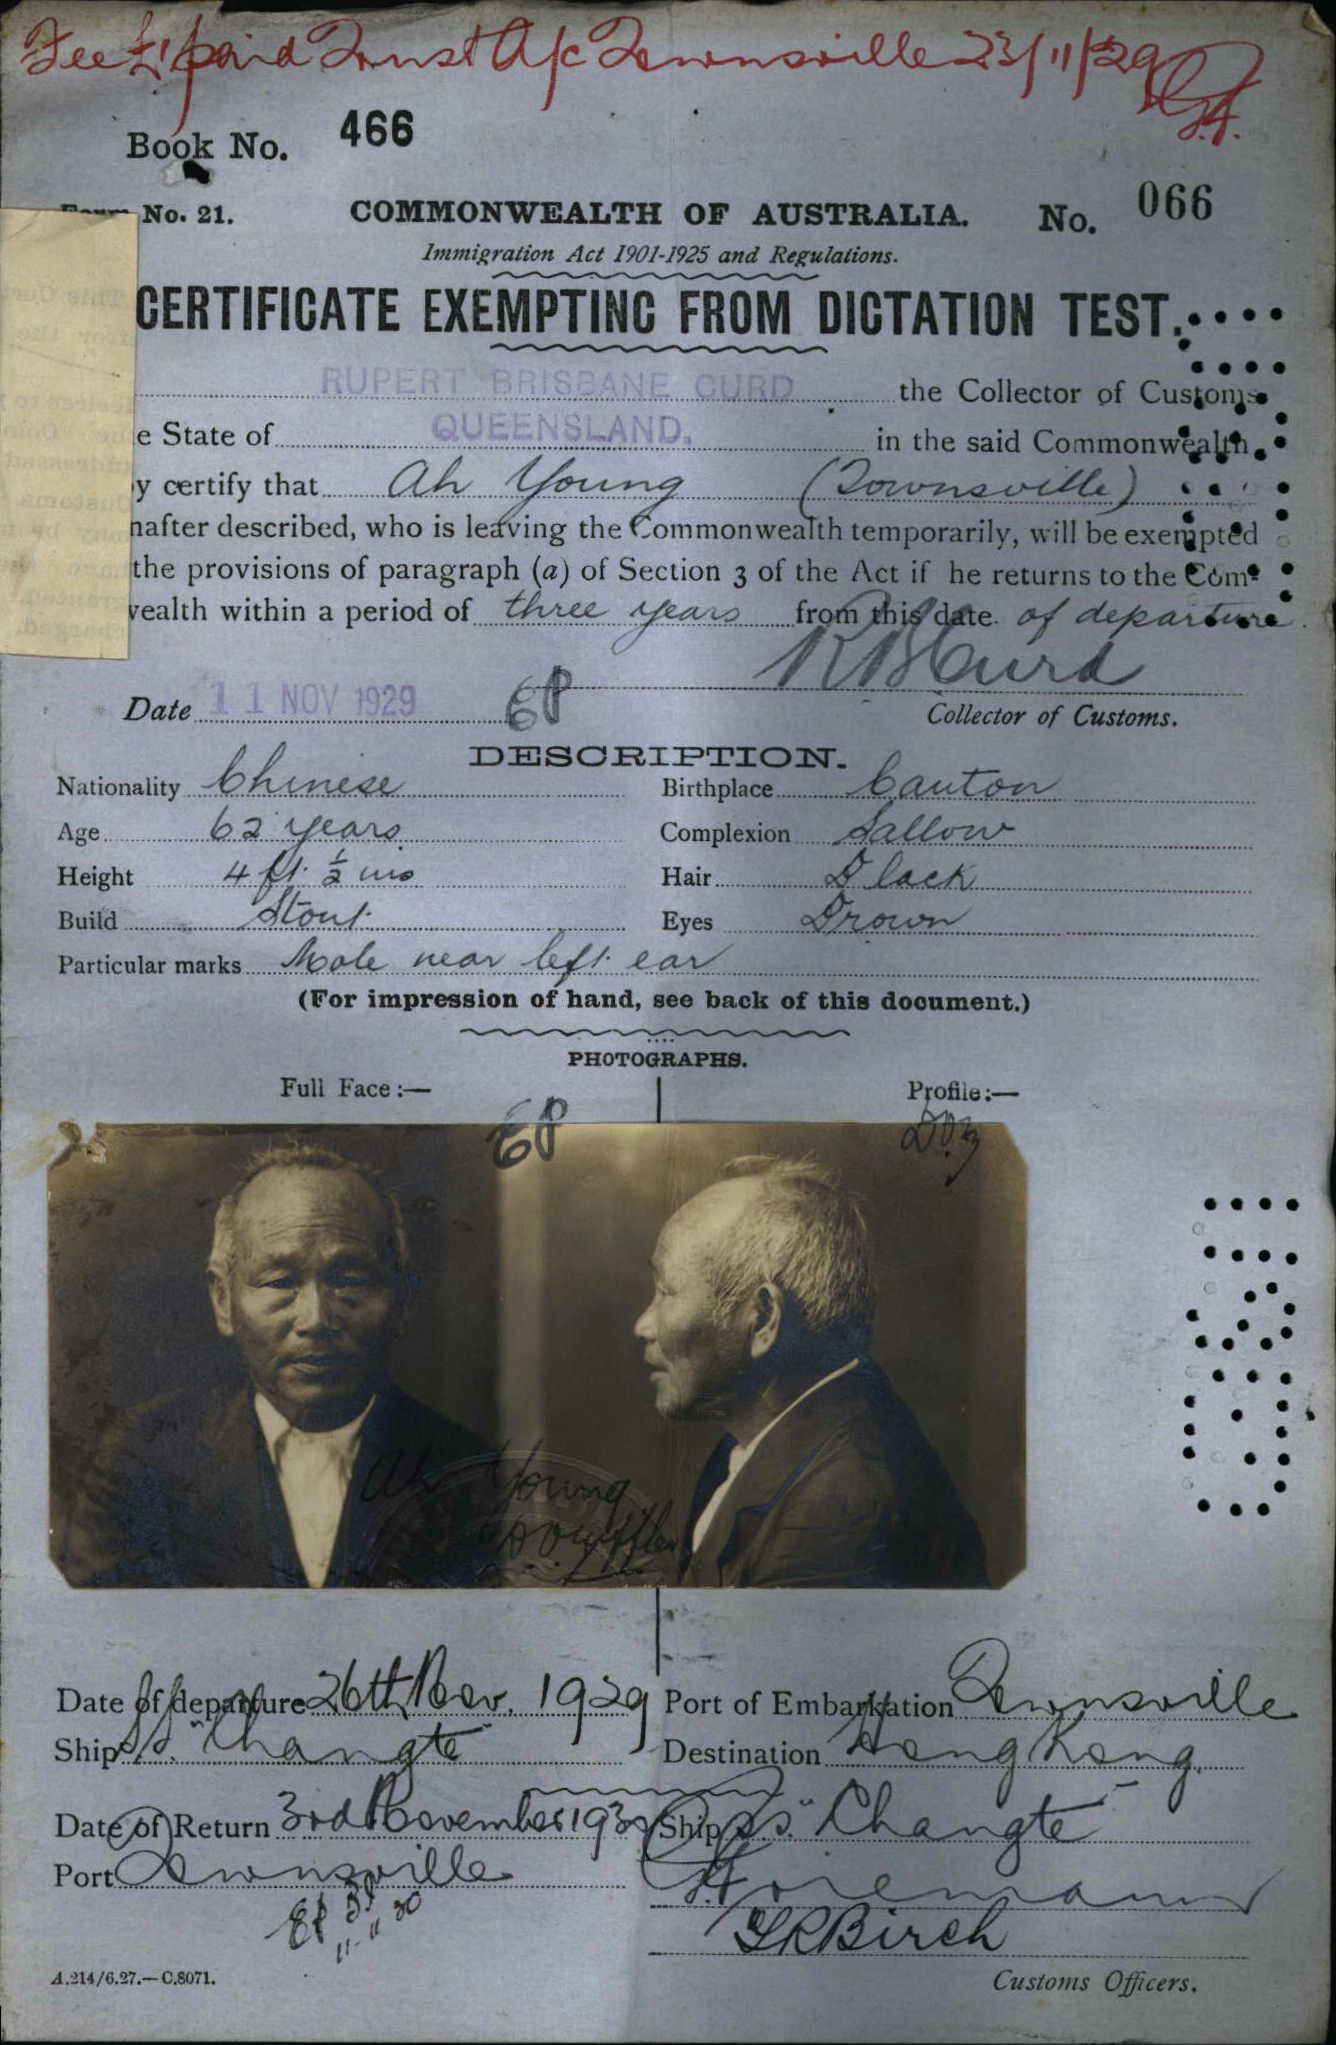 Fee £1 paid Trust A/c Townsville 23/11/29
Book No. 466
Form No. 21. COMMONWEALTH OF AUSTRALIA. No. 066
Immigration Act 1901-1925 and Regulations.
CERTIFICATE EXEMPTING FROM DICTATION TEST.
RUPERT BRISBANE CURD the Collector of Customs
e State of QUEENSLAND. in the said Commonwealth,
y certify that Ah Young (Townsville)
nafter described, who is leaving the Commonwealth temporarily, will be exempted
the provisions of paragraph (a) of Section 3 of the Act if he returns to the Com-
wealth within a period of three years from this date of departure.
R B Curd
Date 11 NOV 1929 Collector of Customs.
DESCRIPTION.
Nationality Chinese Birthplace Canton
Age 62 years Complexion Sallow
Height 4 ft. ½ ins Hair Black
Build Stout Eyes Brown
Particular marks Mole near left ear
(For impression of hand, see back of this document.)
PHOTOGRAPHS.
Full Face:— Profile:—
Ah Young
Date of departure 26th Nov. 1929 Port of Embarkation Townsville
Ship S.S. "Changte" Destination Hong Kong.
Date of Return 3rd November 1930 Ship S.S. "Changte"
Port Townsville
11-11-30
G R Birch
A.214/6.27.—C.8071. Customs Officers.